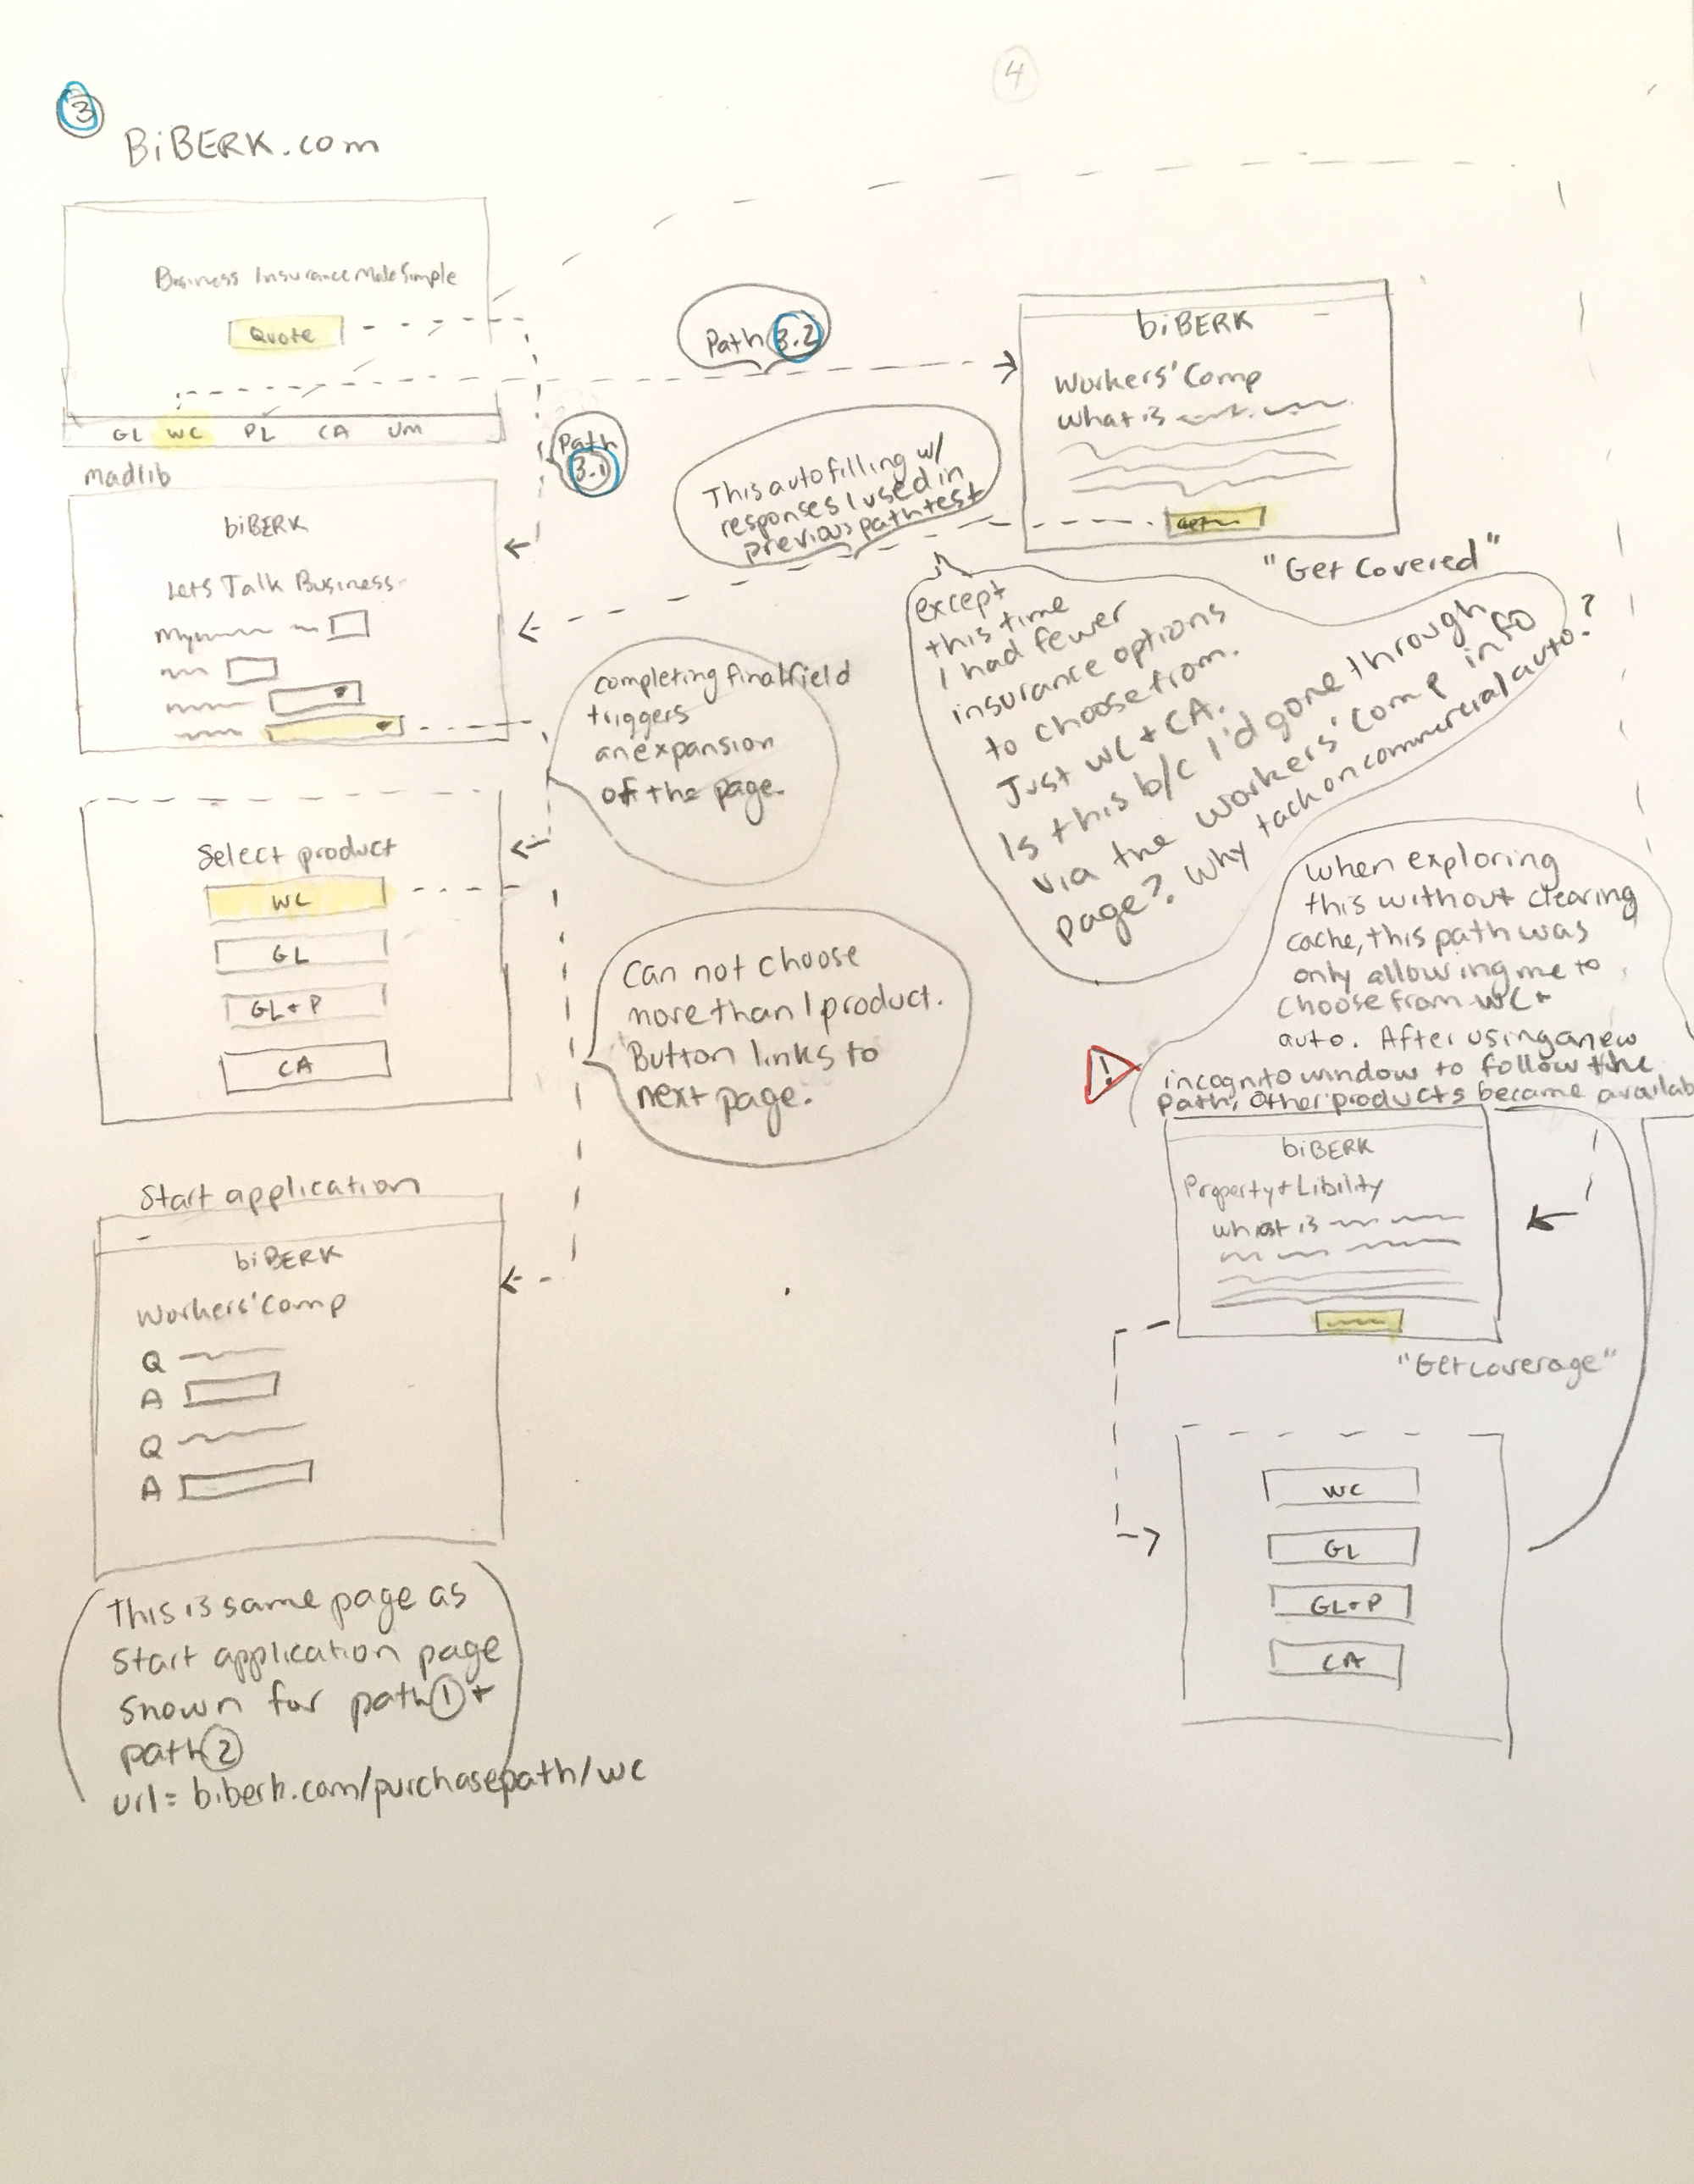 3
4
BiBERK.com
Business Insurance Made Simple
Quote
GL WC PL CA UM
Path 3.1
Path 3.2
madlib
biBERK
Lets Talk Business
My
completing final field
triggers
an expansion
of the page.
Select product
WC
GL
GL+P
CA
Can not choose
more than 1 product.
Button links to
next page.
Start application
biBERK
Workers' Comp
Q
A
Q
A
This is same page as
start application page
shown for path 1 +
path 2
url= biberk.com/purchasepath/wc
biBERK
Workers' Comp
What is
"Get Covered"
This autofilling w/
responses I used in
previous path test
except
this time
I had fewer
insurance options
to choose from.
Just WC + CA.
Is this b/c I'd gone through
via the workers' comp info
page? Why tack on commercial auto?
When exploring
this without clearing
cache, this path was
only allowing me to
choose from WC +
auto. After using a new
! incognito window to follow the
path, other products became availab
biBERK
Property + Libility
What is
"Get Coverage"
WC
GL
GL+P
CA